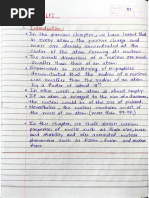 01
Introduction:
• In the previous chapter, we have learnt that
in every atom, the positive charge and
mass are densely concentrated at the
centre of the atom forming its nucleus.
• The overall dimensions of a nucleus are much
smaller than those of an atom.
• Experiments on scattering of α-particles
demonstrated that the radius of a nucleus
was smaller than the radius of an atom
by a factor of about 10⁴.
• In other words, an atom is almost empty.
• If an atom is enlarged to the size of a classroom,
the nucleus would be of the size of pinhead.
• Nevertheless, the nucleus contains most of
the mass of an atom. (more than 99.9%).
• In this chapter, we shall discuss various
properties of nuclei such as their size, mass
and stability, and also associated nuclear
phenomena such as fission, fusion and